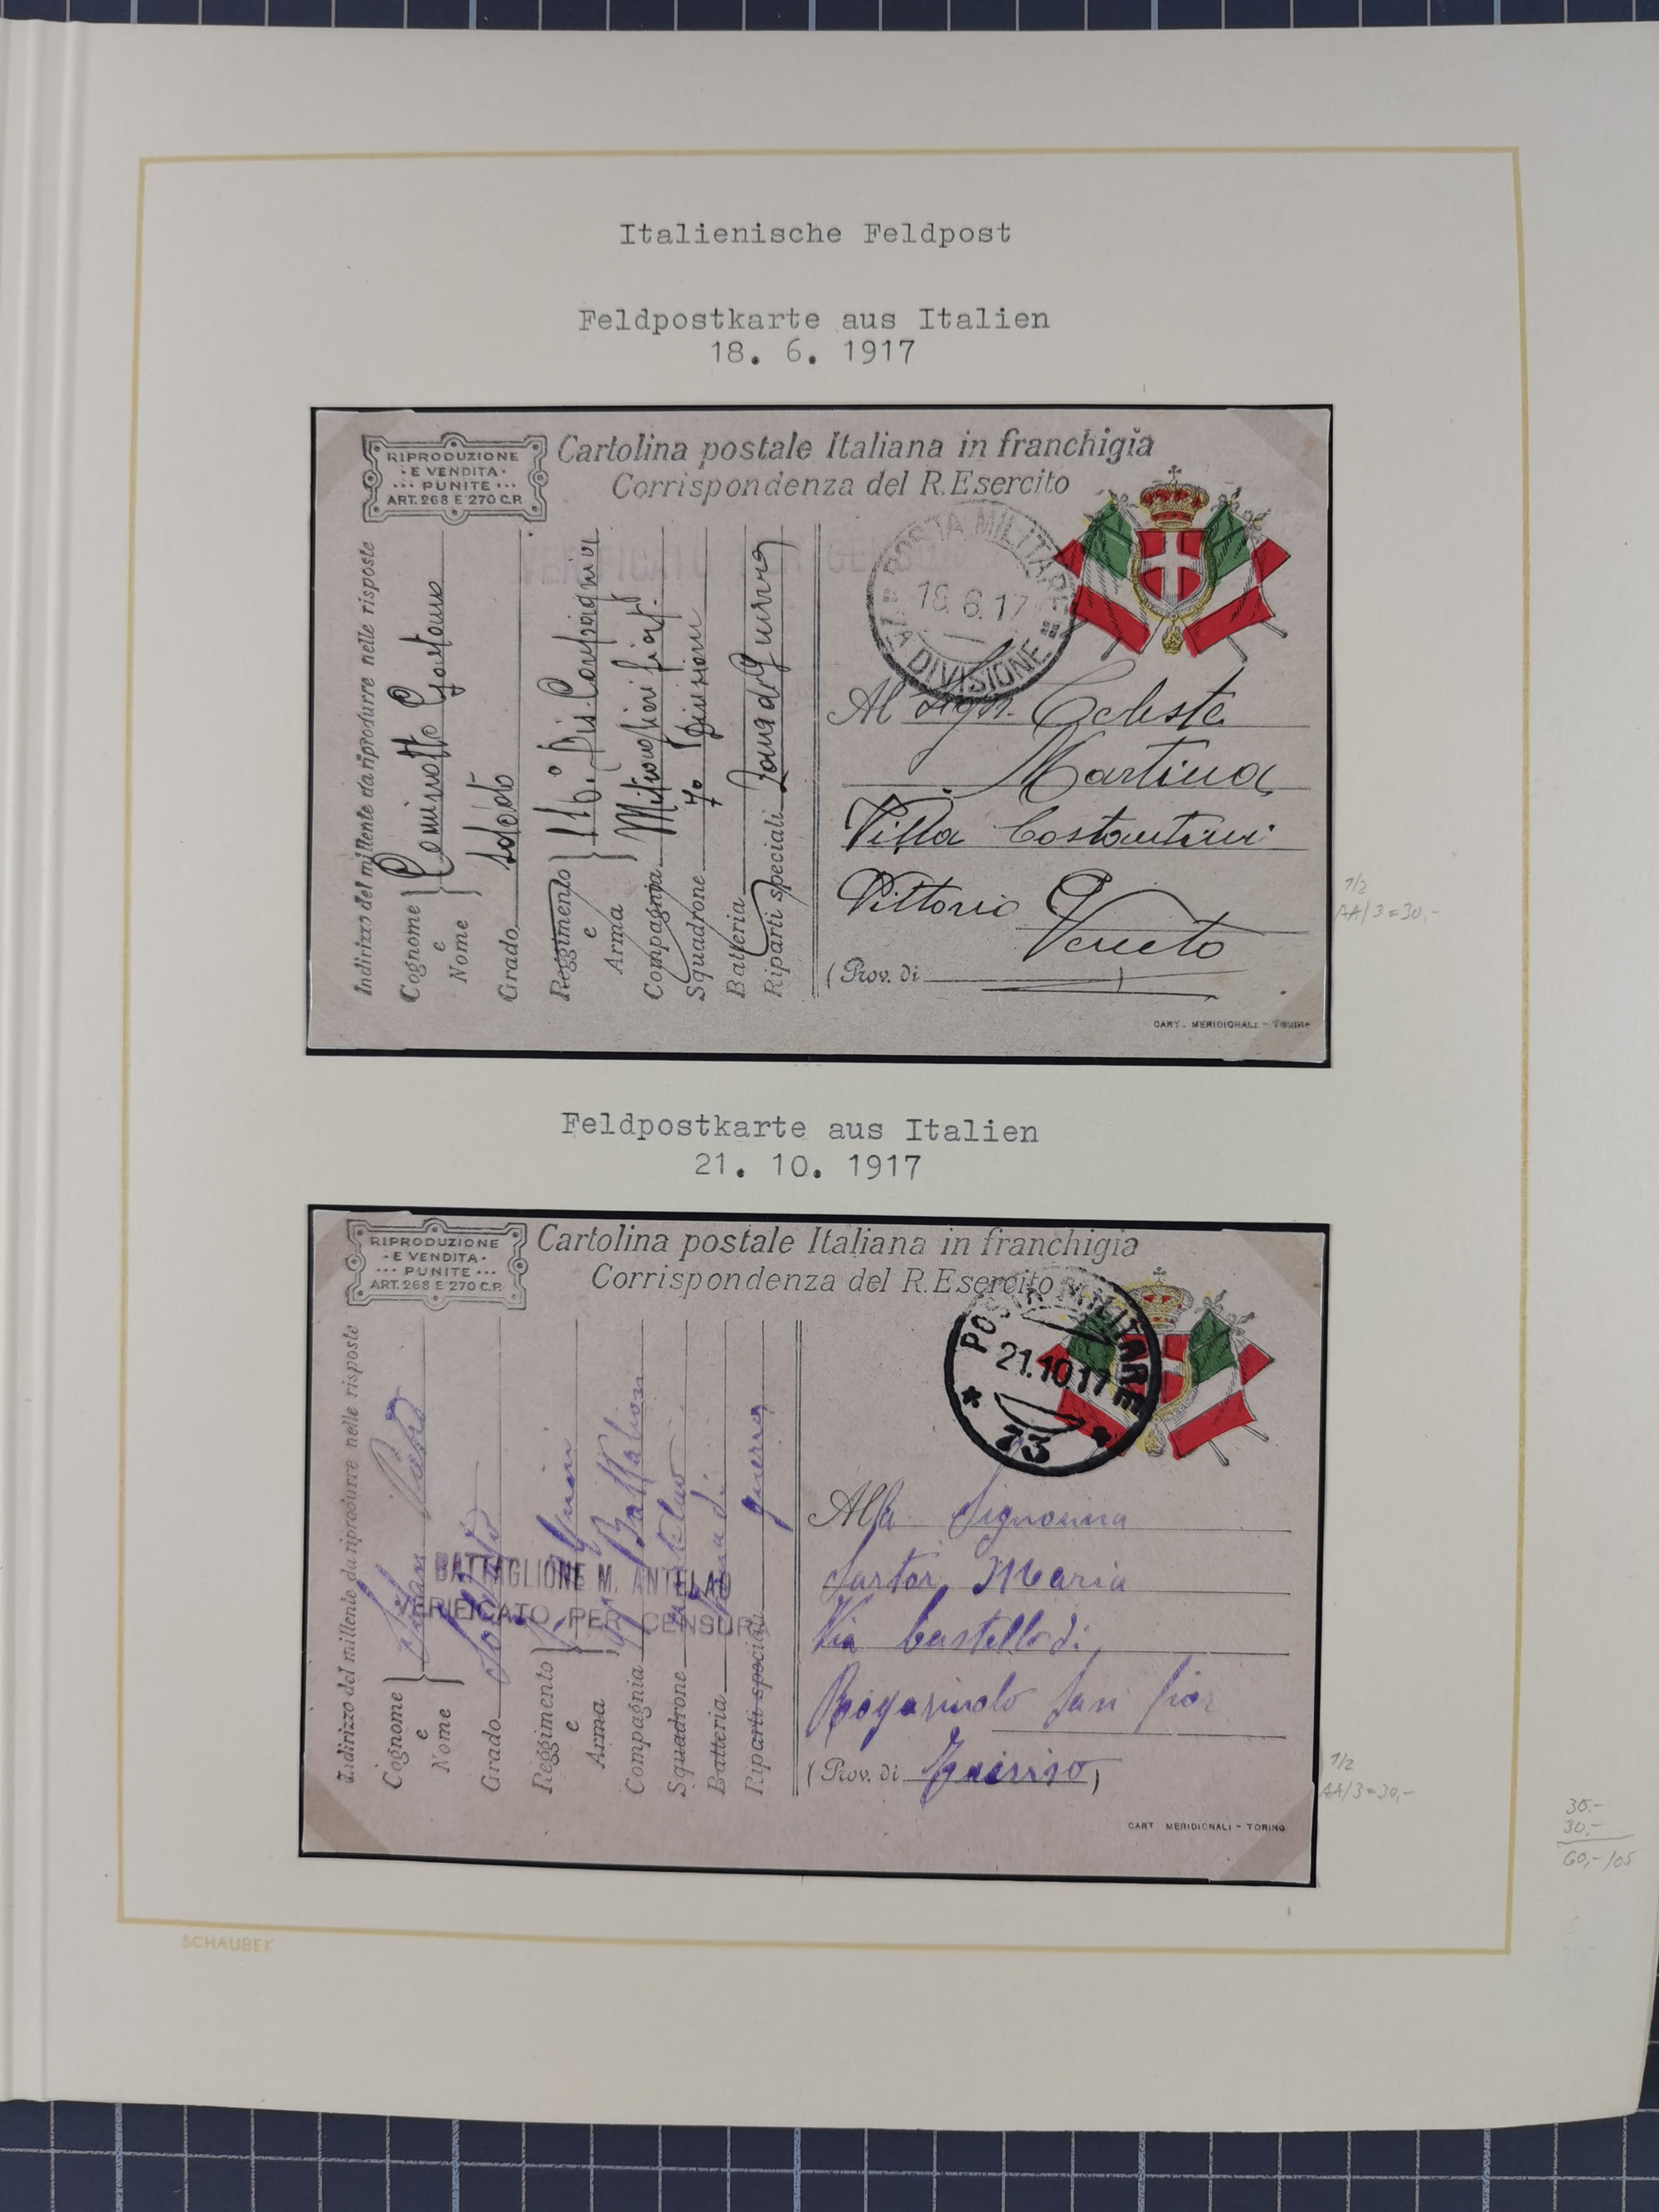 Italienische Feldpost
Feldpostkarte aus Italien
18. 6. 1917
RIPRODUZIONE
E VENDITA
PUNITE
ART. 268 E 270 C.P.
Cartolina postale Italiana in franchigia
Corrispondenza del R. Esercito
VERIFICATO PER CENSURA
POSTA MILITARE
18.6.17
7A DIVISIONE
Indirizzo del mittente da riprodurre nelle risposte
Cognome
e
Nome
Grado soldato
Reggimento
e
Arma
116° Dis. Compagnia
Compagnia Mitraglieri fiat.
Squadrone 7a Divisione
Batteria
Riparti speciali Zona di Guerra
Al Sign. Celeste
Martina
Villa Costantini
Vittorio Veneto
(Prov. di
CART. MERIDIONALI - TORINO
1/2
AA/3=30,-
Feldpostkarte aus Italien
21. 10. 1917
RIPRODUZIONE
E VENDITA
PUNITE
ART. 268 E 270 C.P.
Cartolina postale Italiana in franchigia
Corrispondenza del R. Esercito
POSTA MILITARE
21.10.17
73
Indirizzo del mittente da riprodurre nelle risposte
Cognome
e
Nome
Grado Soldato
Reggimento
e
Arma
Compagnia Battaglion
Squadrone
Batteria Zona di
Riparti speciali guerra
BATTAGLIONE M. ANTELAO
VERIFICATO PER CENSURA
Alla Signorina
Sartor Maria
Via Castello di
San Fior
(Prov. di Treviso)
CART. MERIDIONALI - TORINO
1/2
AA/3=30,-
30,-
30,-
60,-/05
SCHAUBEK